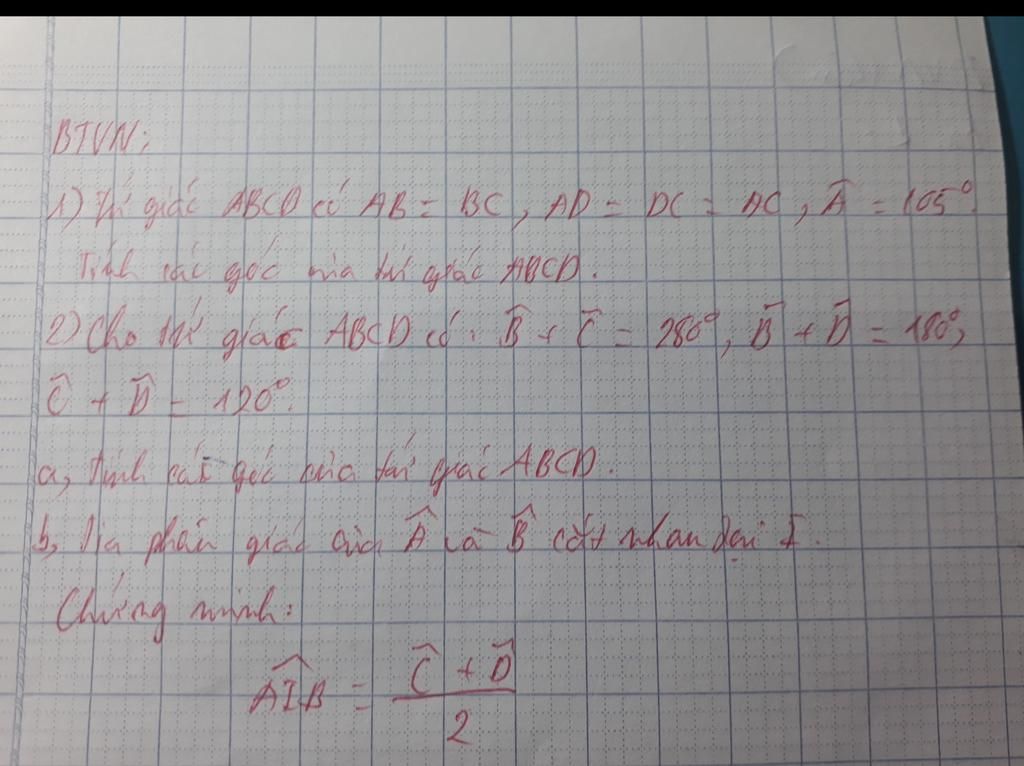 BTVN:
1) Tứ giác ABCD có AB = BC, AD = DC = AC, Â = 105°.
Tính các góc của tứ giác ABCD.
2) Cho tứ giác ABCD có: B̂ + Ĉ = 280°, B̂ + D̂ = 180°,
Ĉ + D̂ = 120°.
a, Tính các góc của tứ giác ABCD.
b, Tia phân giác của Â và B̂ cắt nhau tại I.
Chứng minh:
ÂIB = (Ĉ + D̂)/2